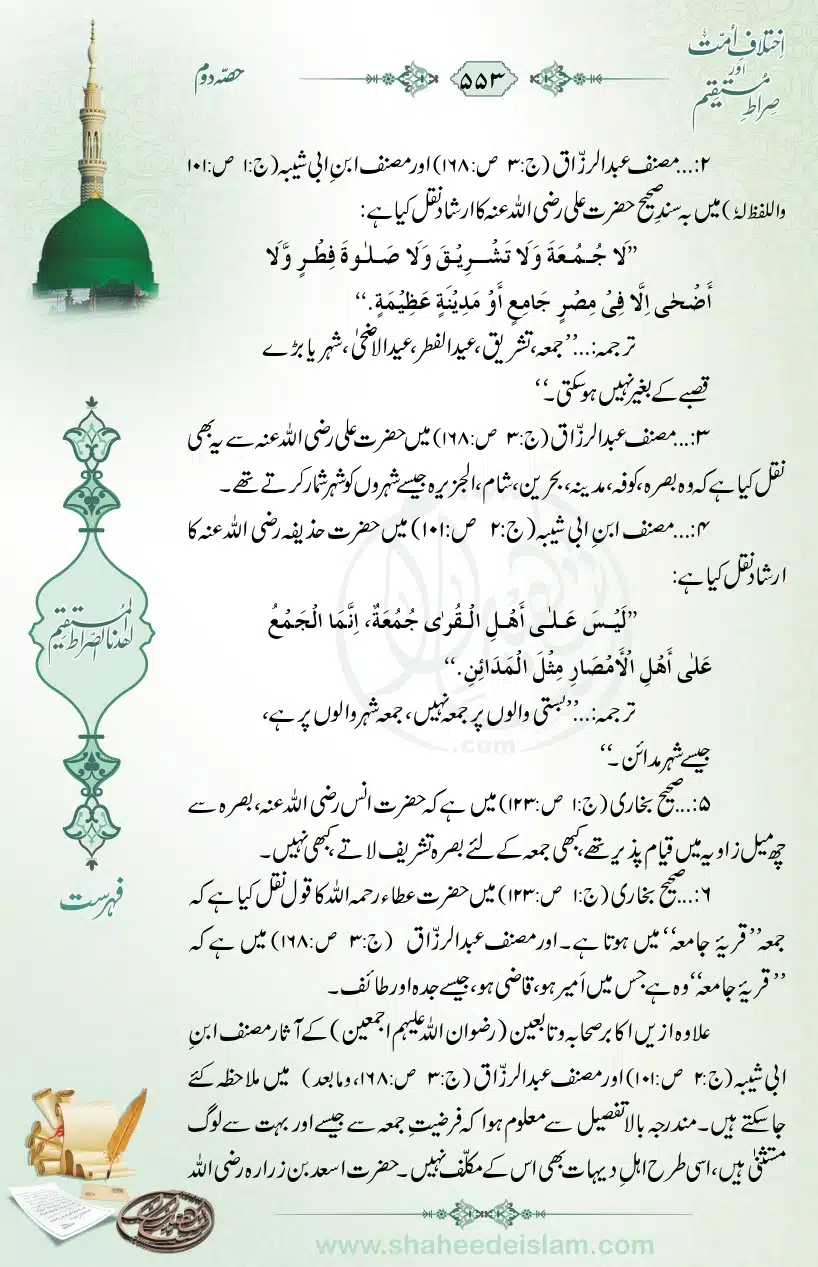 اِختلافِ اُمّت
اور
صِراطِ مُستقیم
۵۵۳
حصّہ دوم
۲:...مصنف عبدالرزّاق (ج:۳ ص:۱۶۸) اور مصنف ابنِ ابی شیبہ (ج:۱ ص:۱۰۱
واللفظ لہٗ) میں بہ سندِ صحیح حضرت علی رضی اللہ عنہ کا ارشاد نقل کیا ہے:
”لَا جُـمُـعَةَ وَلَا تَشْـرِيْـقَ وَلَا صَـلـٰوةَ فِطْـرٍ وَّلَا
أَضْحٰى اِلَّا فِىْ مِصْرٍ جَامِعٍ أَوْ مَدِيْنَةٍ عَظِيْمَةٍ.“
ترجمہ:...”جمعہ، تشریق، عیدالفطر، عیدالاضحیٰ، شہر یا بڑے
قصبے کے بغیر نہیں ہوسکتی۔“
۳:...مصنف عبدالرزّاق (ج:۳ ص:۱۶۸) میں حضرت علی رضی اللہ عنہ سے یہ بھی
نقل کیا ہے کہ وہ بصرہ، کوفہ، مدینہ، بحرین، شام، الجزیرہ جیسے شہروں کو شہر شمار کرتے تھے۔
۴:...مصنف ابنِ ابی شیبہ (ج:۲ ص:۱۰۱) میں حضرت حذیفہ رضی اللہ عنہ کا
ارشاد نقل کیا ہے:
”لَيْـسَ عَـلـٰى أَهْـلِ الْـقُـرٰى جُمُعَةٌ، اِنَّمَا الْجَمْعُ
عَلٰى أَهْلِ الْأَمْصَارِ مِثْلَ الْمَدَائِنِ.“
ترجمہ:...”بستی والوں پر جمعہ نہیں، جمعہ شہر والوں پر ہے،
جیسے شہر مدائن۔“
۵:...صحیح بخاری (ج:۱ ص:۱۲۳) میں ہے کہ حضرت انس رضی اللہ عنہ، بصرہ سے
چھ میل زاویہ میں قیام پذیر تھے، کبھی جمعہ کے لئے بصرہ تشریف لاتے، کبھی نہیں۔
۶:...صحیح بخاری (ج:۱ ص:۱۲۳) میں حضرت عطاء رحمہ اللہ کا قول نقل کیا ہے کہ
جمعہ ”قریۂ جامعہ“ میں ہوتا ہے۔ اور مصنف عبدالرزّاق (ج:۳ ص:۱۶۸) میں ہے کہ
”قریۂ جامعہ“ وہ ہے جس میں اَمیر ہو، قاضی ہو، جیسے جدہ اور طائف۔
علاوہ ازیں اکابر صحابہ و تابعین (رضوان اللہ علیہم اجمعین) کے آثار مصنف ابنِ
ابی شیبہ (ج:۲ ص:۱۰۱) اور مصنف عبدالرزّاق (ج:۳ ص:۱۶۸، وما بعد) میں ملاحظہ کئے
جاسکتے ہیں۔ مندرجہ بالا تفصیل سے معلوم ہوا کہ فرضیتِ جمعہ سے جیسے اور بہت سے لوگ
مستثنیٰ ہیں، اسی طرح اہلِ دیہات بھی اس کے مکلّف نہیں۔ حضرت اسعد بن زرارہ رضی اللہ
اھدنا الصراط المستقیم
فہرست
.com
www.shaheedeislam.com